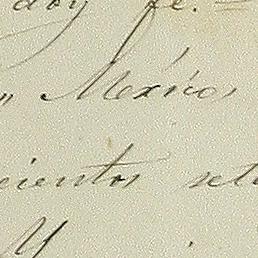 doy fe.
México
cientos sete
Y